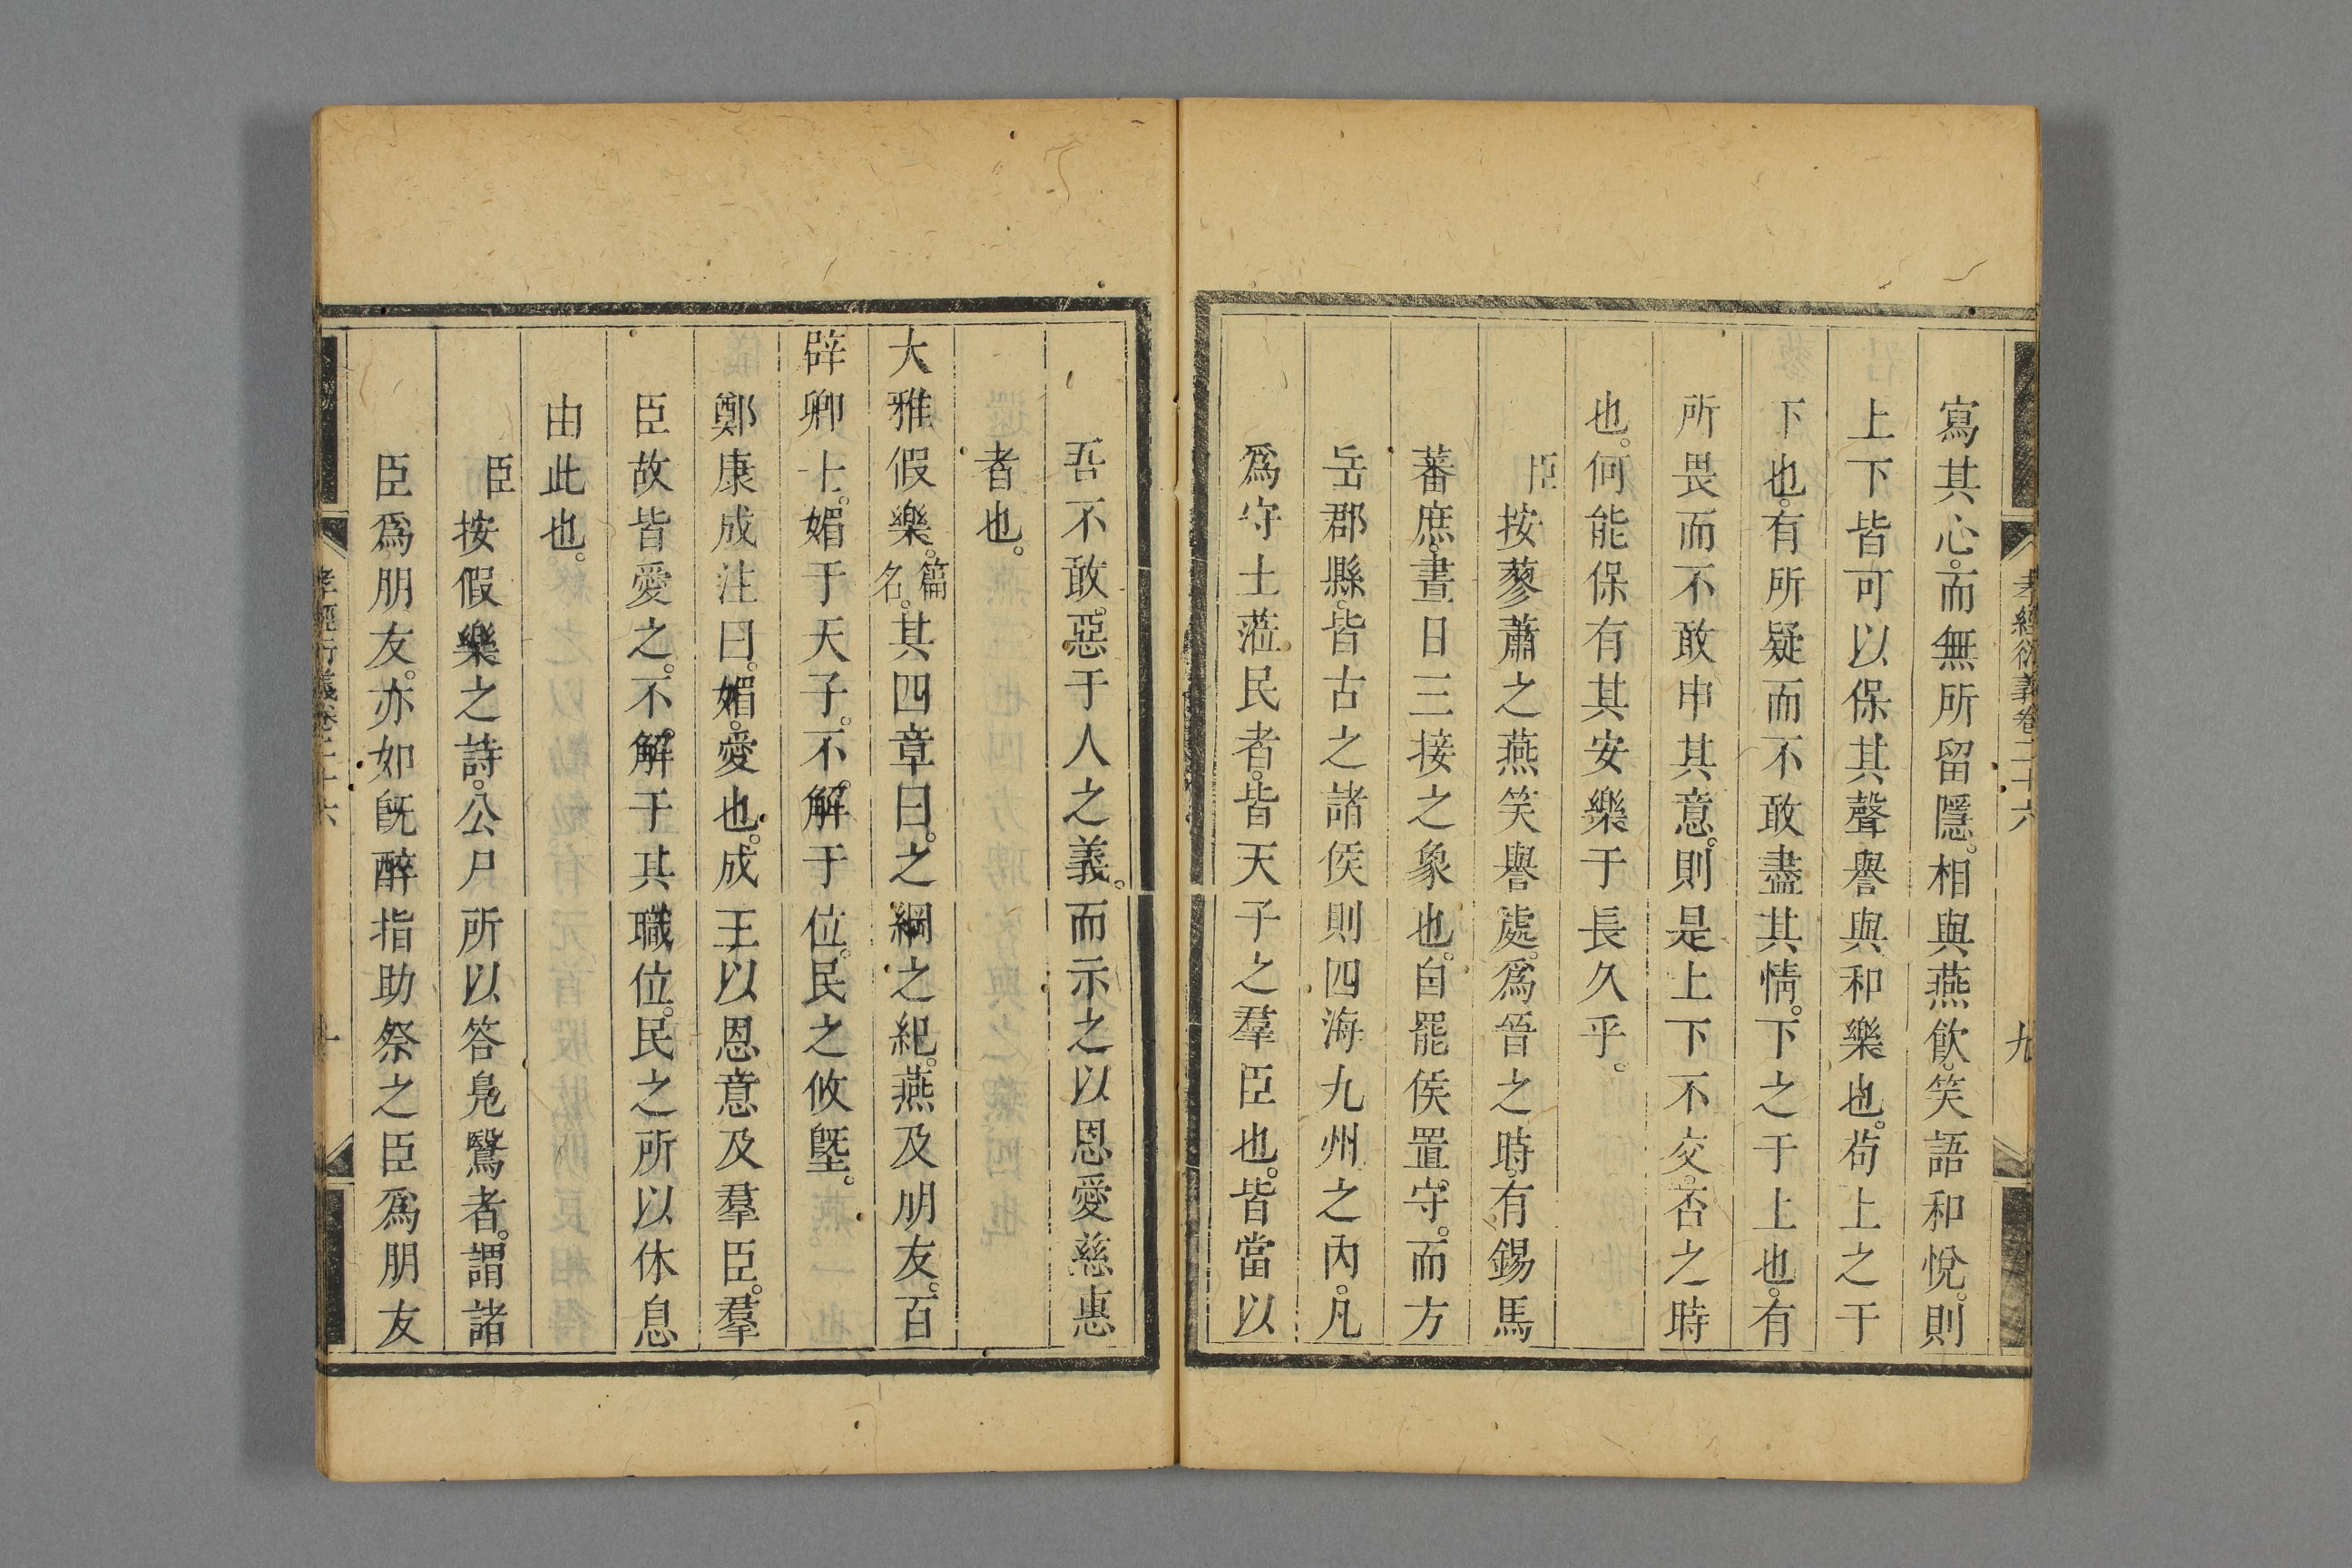 孝經衍義卷二十六　九
寫其心。而無所留隱。相與燕飲。笑語和悅。則
上下皆可以保其聲譽與和樂也。苟上之于
下也。有所疑而不敢盡其情。下之于上也。有
所畏而不敢申其意。則是上下不交。否之時
也。何能保有其安樂于長久乎。
臣按蓼蕭之燕笑譽處。爲晉之時。有錫馬
蕃庶。晝日三接之象也。自罷侯置守。而方
岳郡縣。皆古之諸侯。則四海九州之內。凡
爲守土蒞民者。皆天子之羣臣也。皆當以
吾不敢。惡于人之義。而示之以恩愛慈惠
者也。
大雅假樂。篇名。其四章曰。之綱之紀。燕及朋友。百
辟卿士。媚于天子。不解于位。民之攸墍。
鄭康成注曰。媚。愛也。成王以恩意及羣臣。羣
臣故皆愛之。不解于其職位。民之所以休息
由此也。
臣按假樂之詩。公尸所以答鳧鷖者。謂諸
臣爲朋友。亦如旣醉指助祭之臣爲朋友
孝經衍義卷二十六